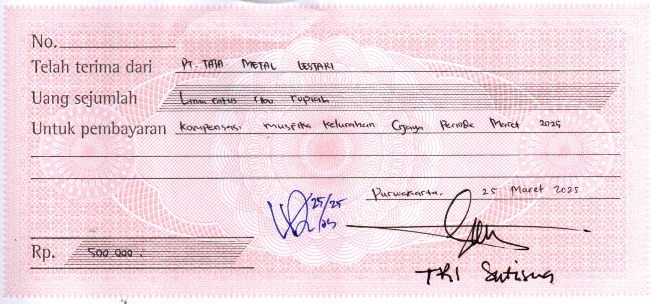 No.
Telah terima dari PT. TATA METAL LESTARI
Uang sejumlah Lima ratus ribu rupiah
Untuk pembayaran Kompensasi muspika kelurahan Cijaya Periode Maret 2025
Purwakarta, 25 Maret 2025
25/25
Rp. 500 000.
TRI Sutisna